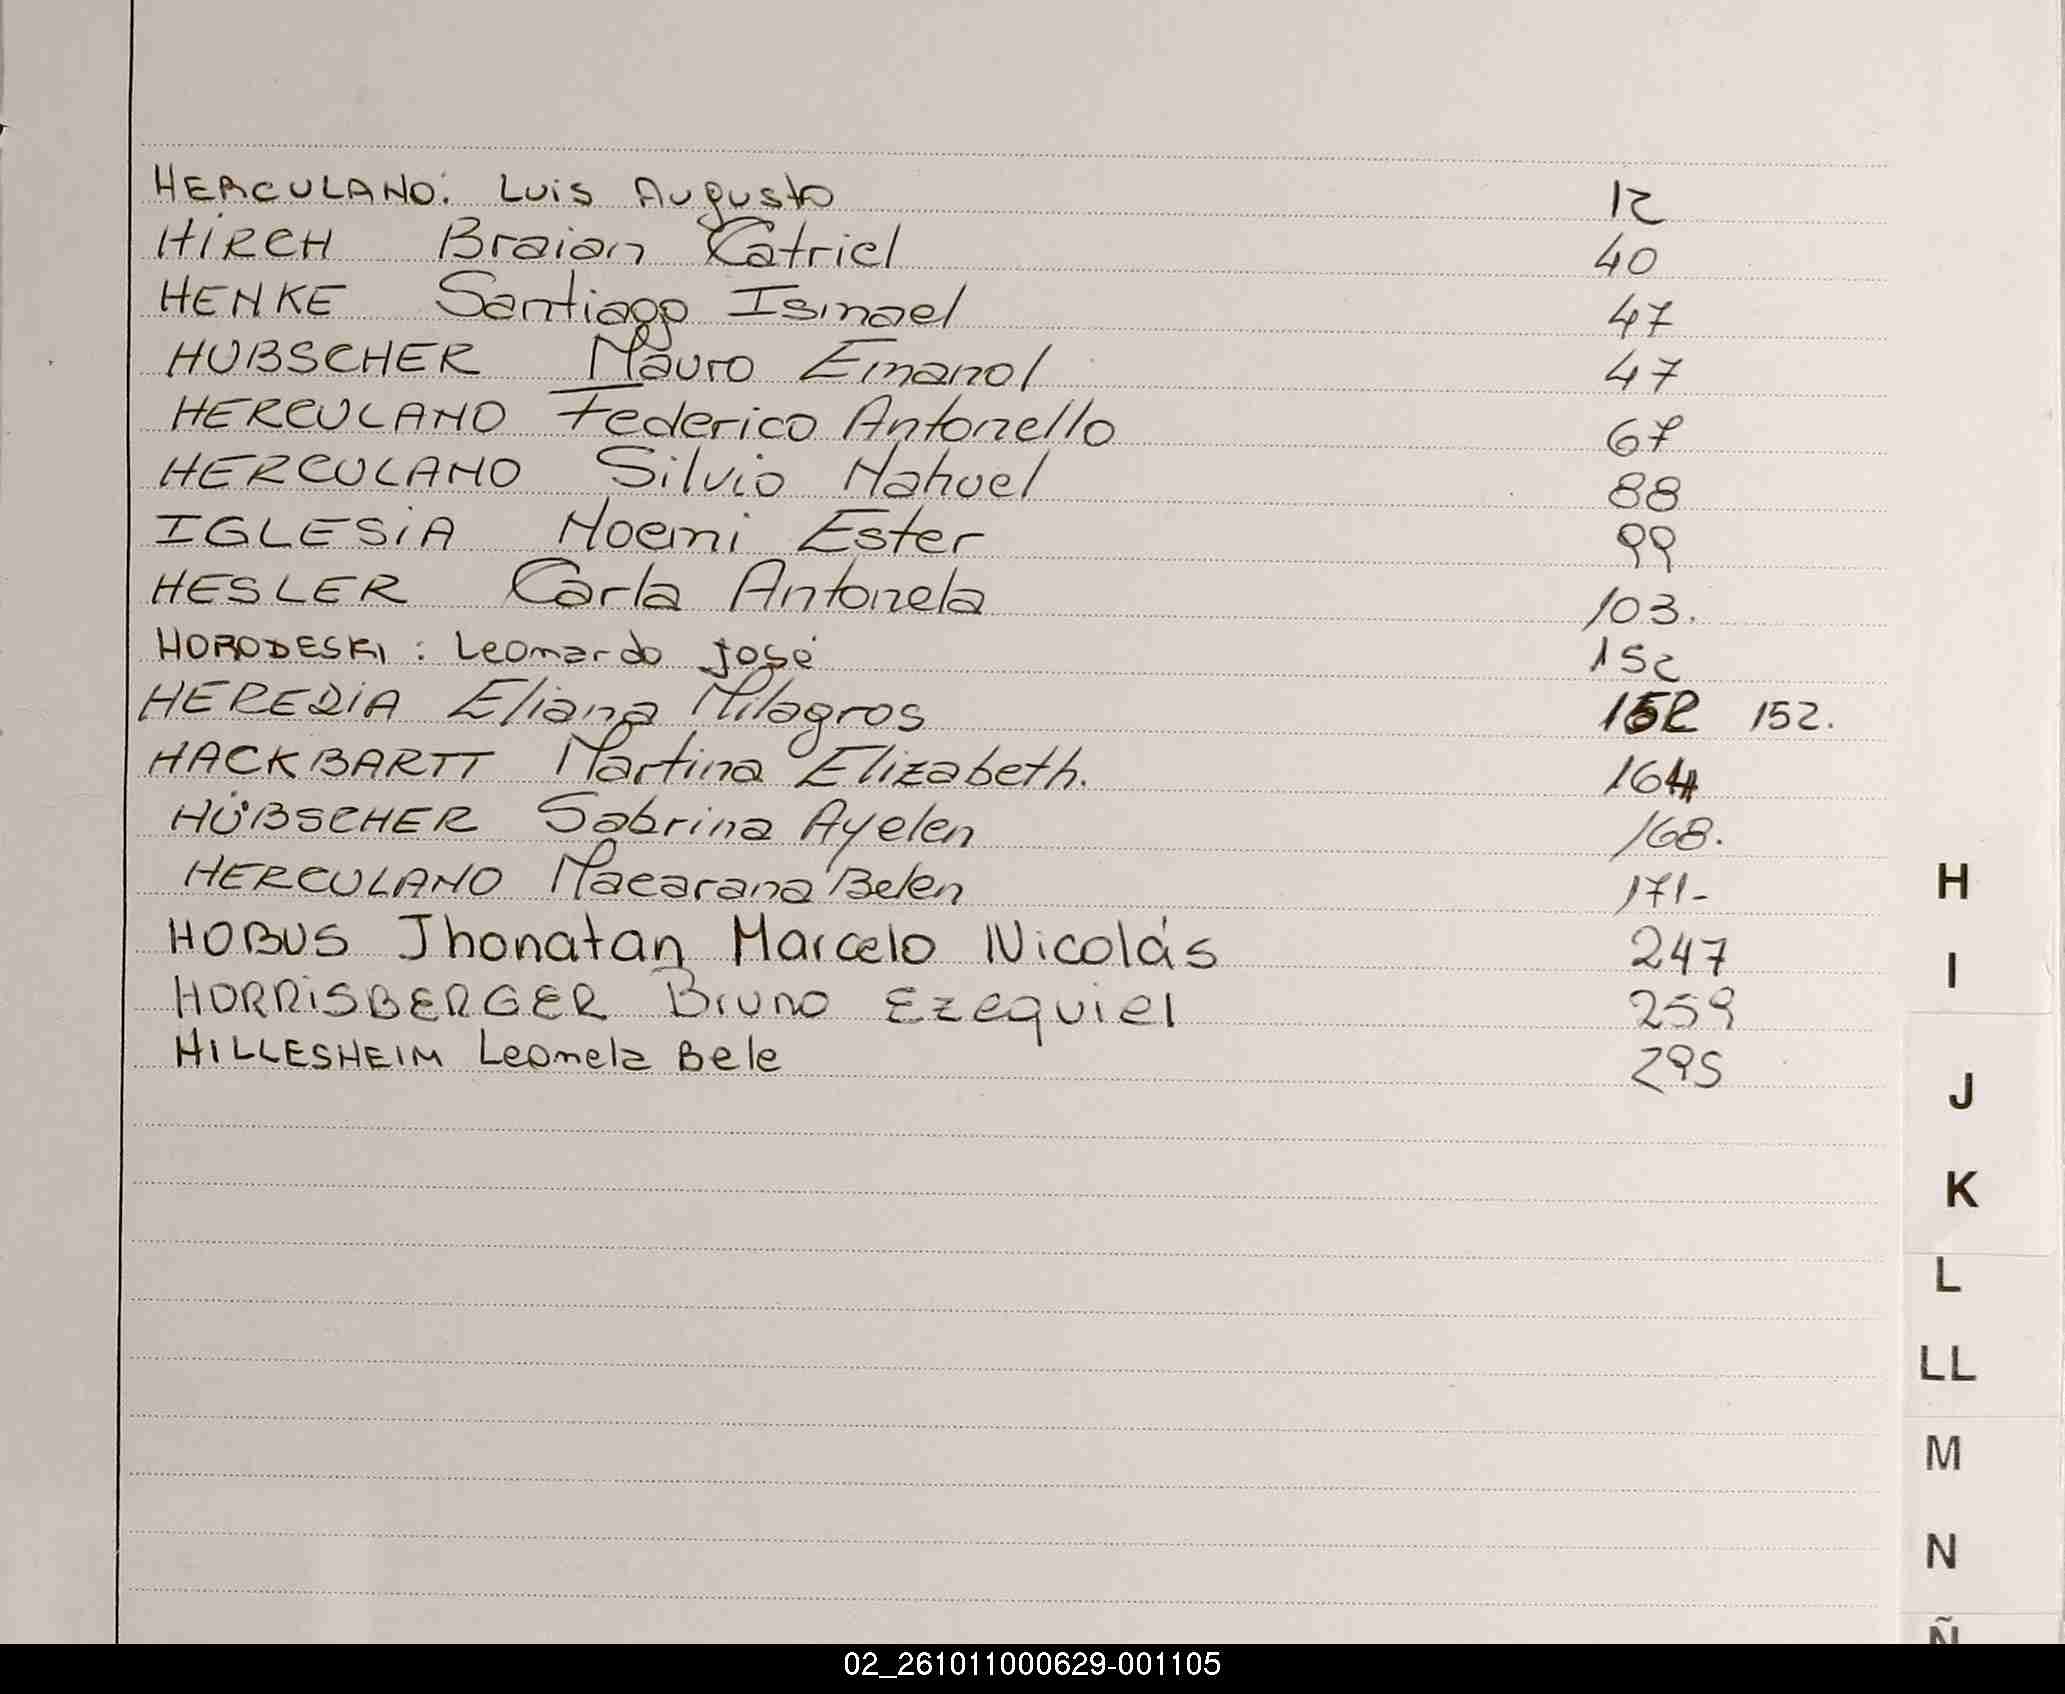 HERCULANO: Luis Augusto 12
HIRCH Braian Catriel 40
HENKE Santiago Ismael 47
HUBSCHER Mauro Emanol 47
HERCULANO Federico Antonello 67
HERCULANO Silvio Nahuel 88
IGLESIA Noemi Ester 99
HESLER Carla Antonela 103.
HORODESKI: Leonardo José 152
HEREDIA Eliana Milagros 152 152.
HACKBARTT Martina Elizabeth. 164
HÜBSCHER Sabrina Ayelen 168.
HERCULANO Macarana Belen 171-
HOBUS Jhonatan Marcelo Nicolás 247
HORRISBERGER Bruno Ezequiel 259
HILLESHEIM Leonela Bele 295
H
I
J
K
L
LL
M
N
Ñ
02_261011000629-001105